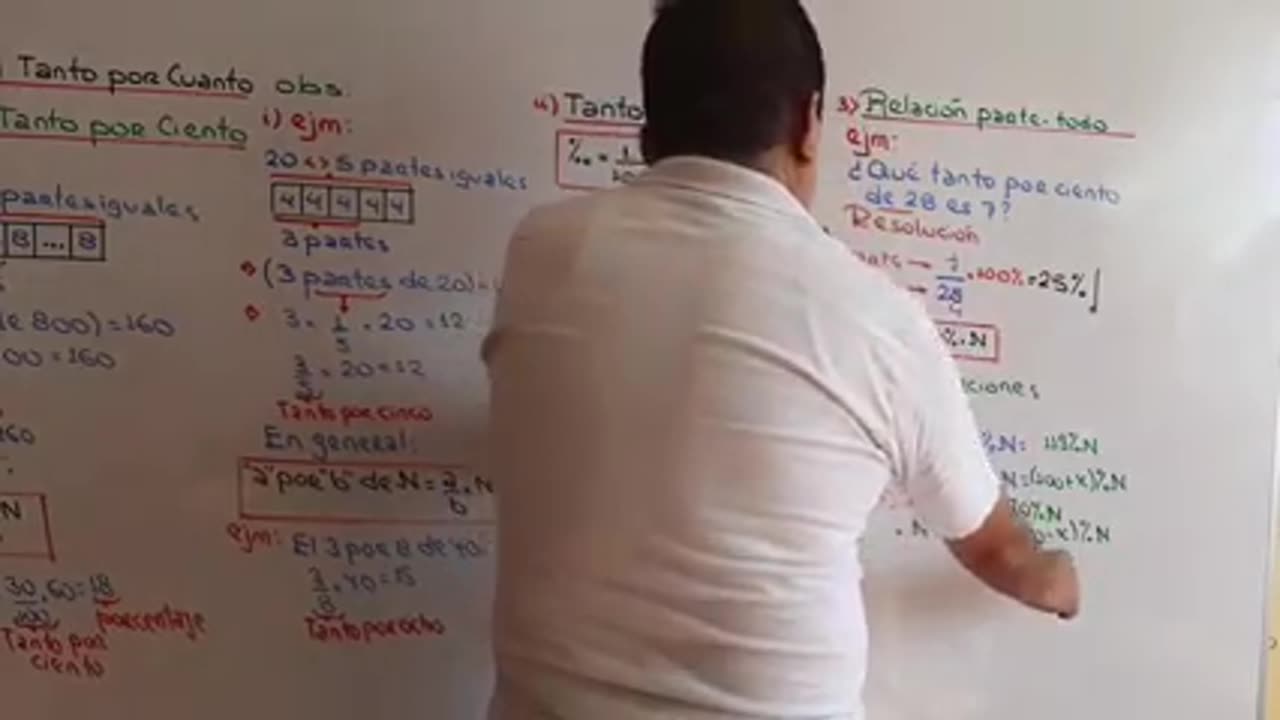 Tanto por Cuanto
Tanto por Ciento
partes iguales
8 ... 8
de 800) = 160
00 = 160
N
30 . 60 = 18
100
porcentaje
Tanto por
ciento
obs:
i) ejm:
20 <> 5 partes iguales
4 4 4 4 4
3 partes
(3 partes de 20) =
3 . 1/5 . 20 = 12
3/5 . 20 = 12
Tanto por cinco
En general:
"a" por "b" de N = a/b . N
ejm: El 3 por 8 de 40:
3/8 . 40 = 15
Tanto por ocho
4) Tanto
‰ = 1
3) Relación parte-todo
ejm:
¿Qué tanto por ciento
de 28 es 7?
Resolución
7/28 . 100% = 25%
4
% . N
ciones
%N = 119%N
N = (100+x)%N
70%N
-x)%N